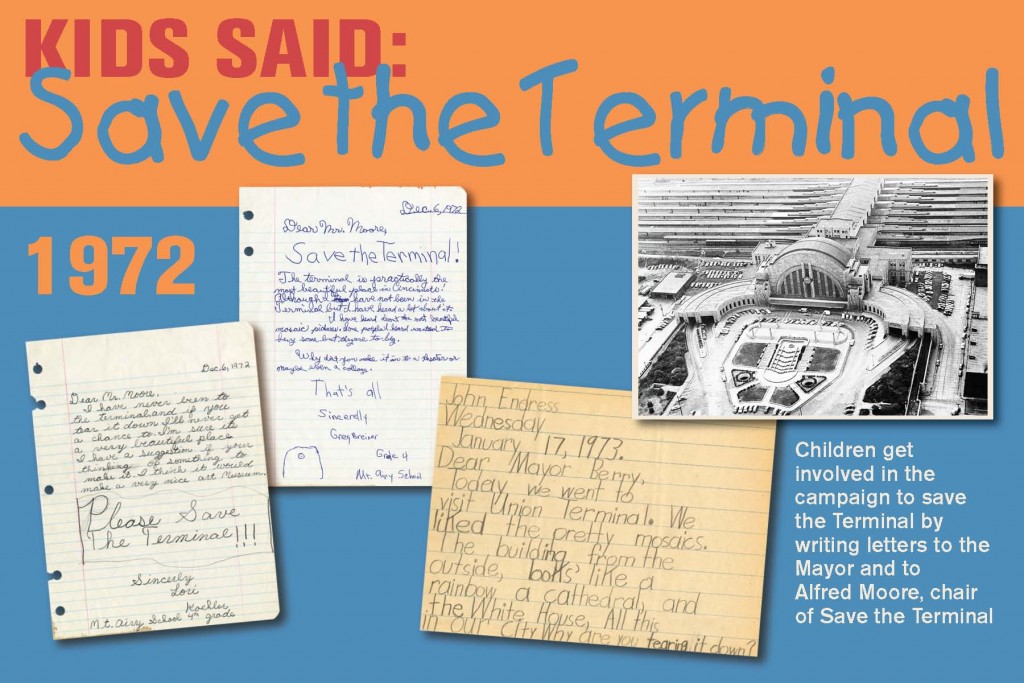 KIDS SAID:
Save the Terminal
1972
Dec. 6, 1972
Dear Mr. Moore,
Save the Terminal!
The terminal is practically the
most beautiful place in Cincinnati!
Although I have not been in the
Terminal but I have heard a lot about it.
I have heard about the most beautiful
mosaic pictures. Some people I heard wanted to
buy some but they are to big.
Why dont you make it in to a theater or
maybe even a college.
That's all
Sincerelly
Greg Breiner
Grade 4
Mt. Airy School
Dec. 6, 1972
Dear Mr. Moore,
I have never been to
the terminal and if you
tear it down I'll never get
a chance to. I'm sure its
a very beautiful place
I have a suggestion if your
thinking of something to
make it. I think it would
make a very nice art Museum.
Please Save
The Terminal!!!
Sincerly
Lori
Koehler
Mt. Airy School 4th grade
John Endress
Wednesday
January 17, 1973.
Dear Mayor Berry,
Today we went to
visit Union Terminal. We
liked the pretty mosaics.
The building from the
outside, looks like a
rainbow, a cathedral, and
the White House, All this
in our city Why are you tearing it down?
Children get
involved in the
campaign to save
the Terminal by
writing letters to the
Mayor and to
Alfred Moore, chair
of Save the Terminal